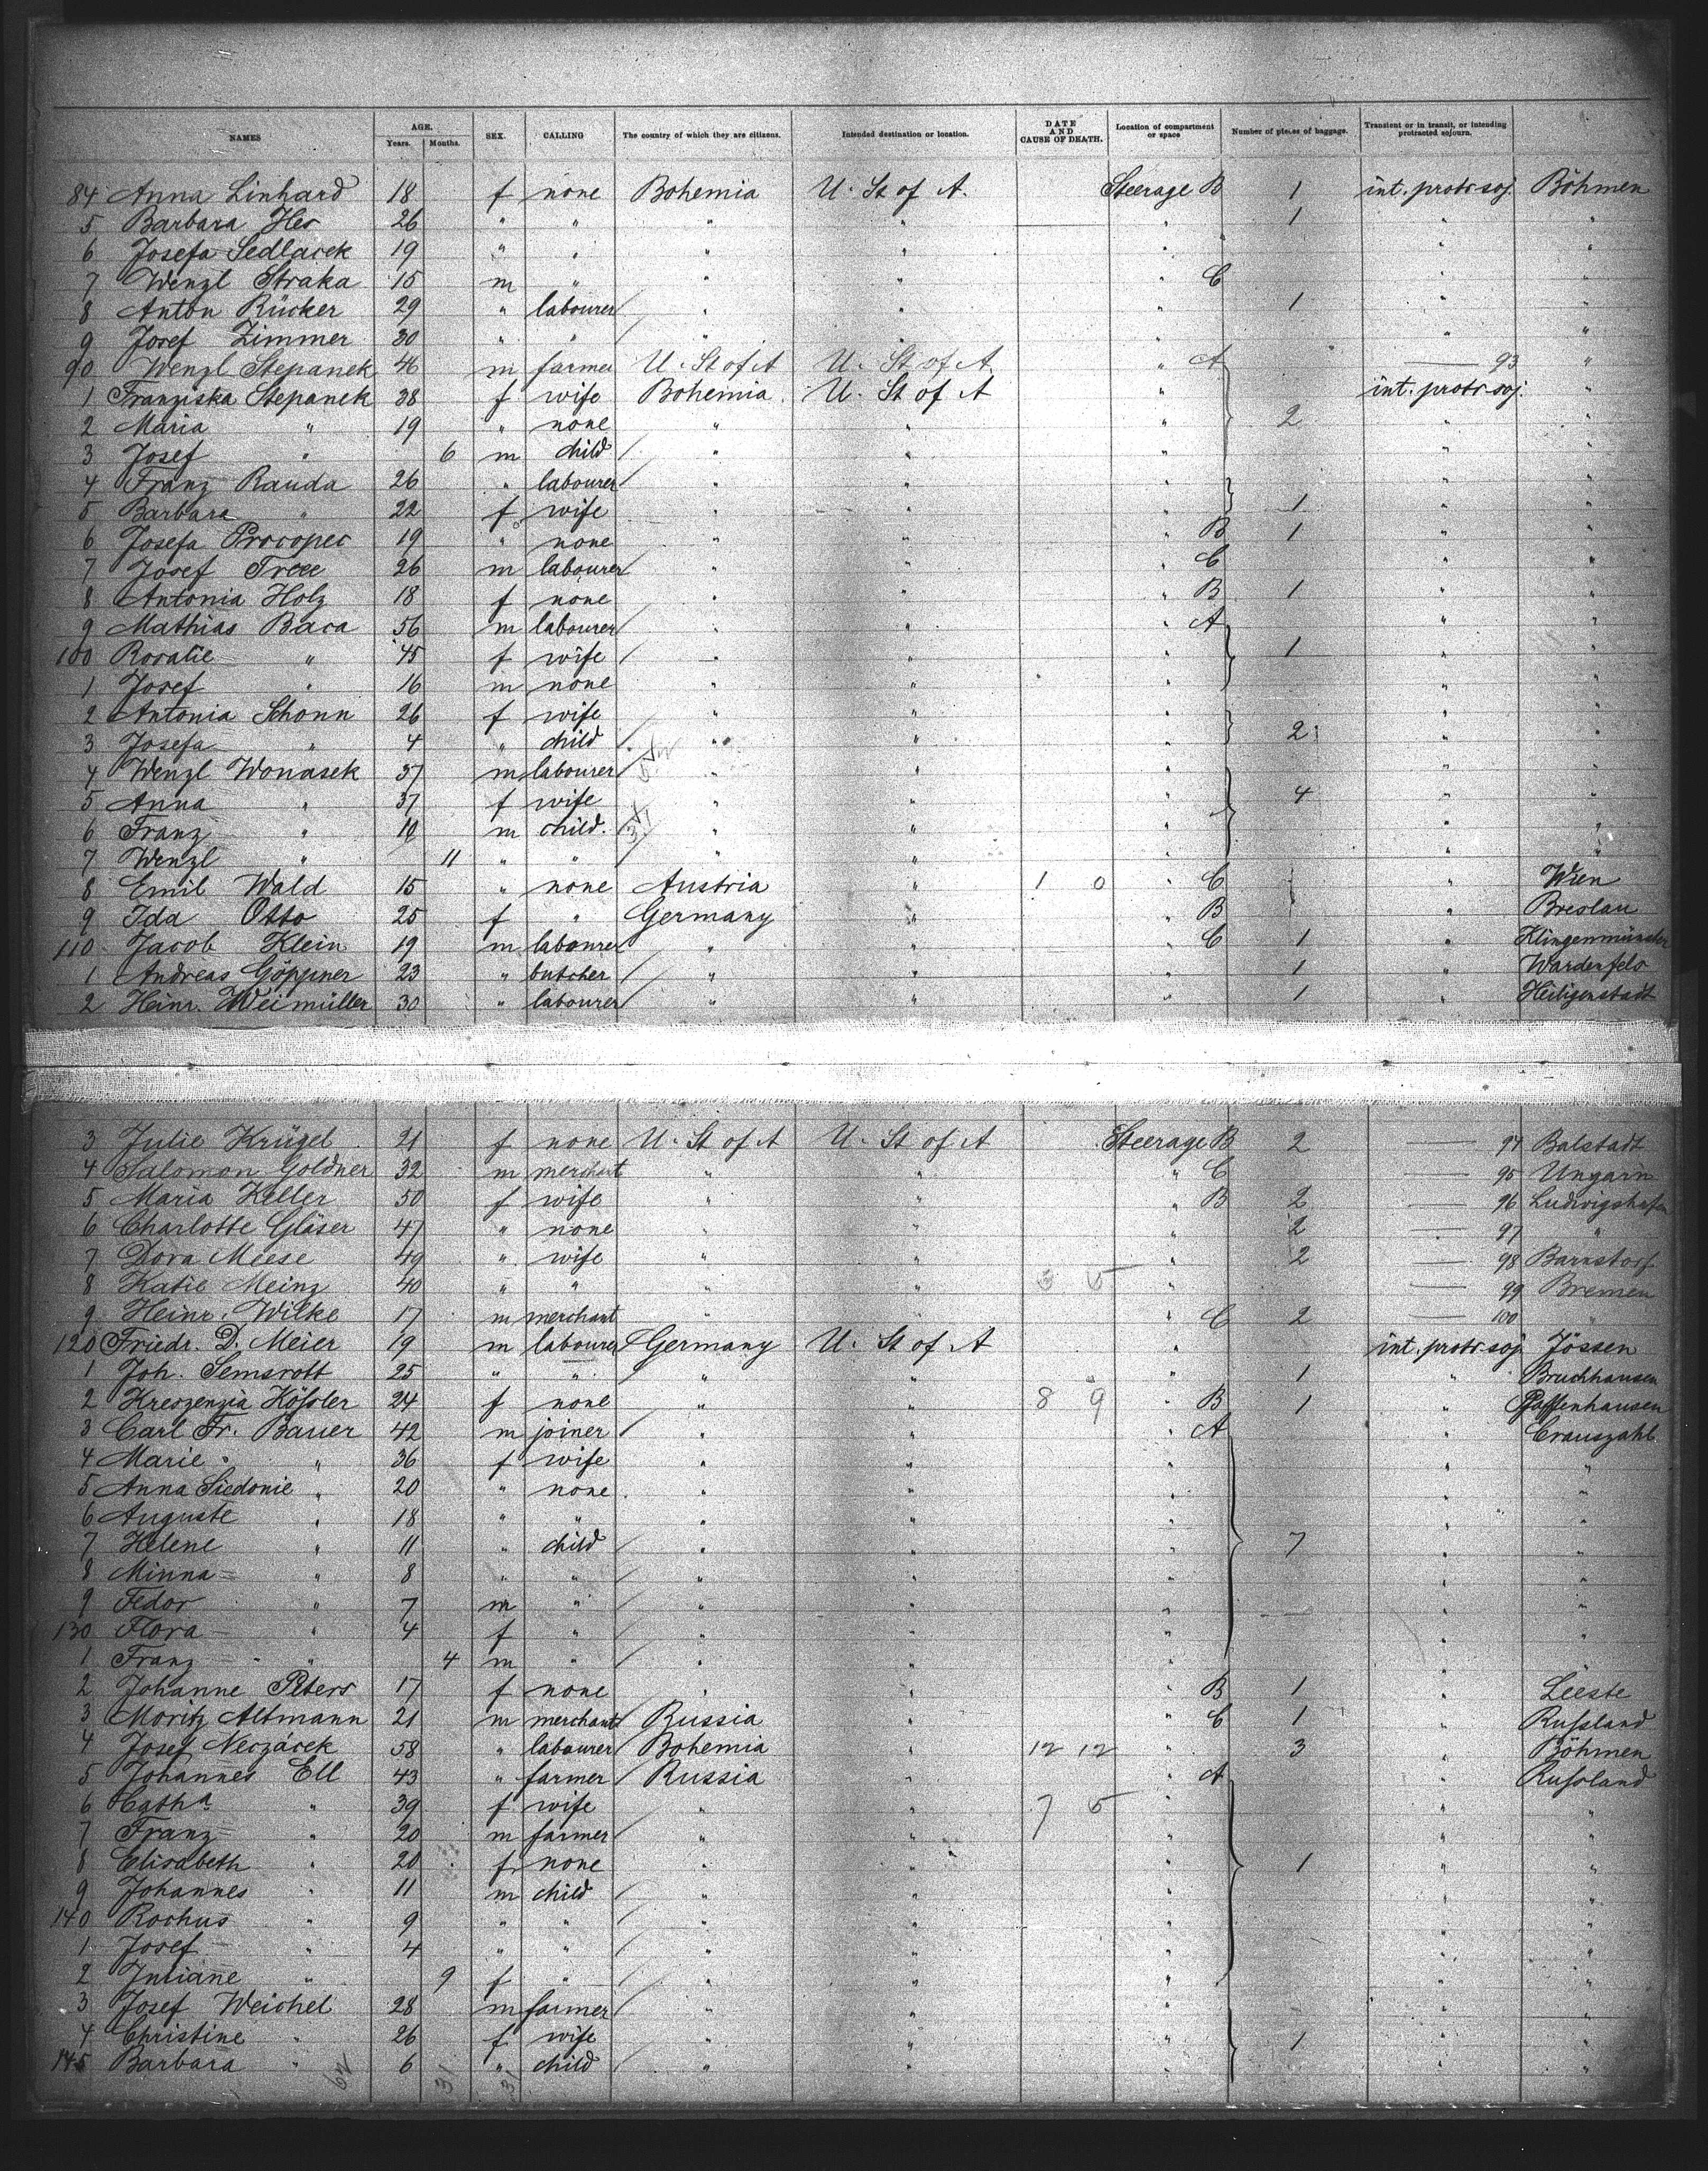 NAMES AGE. Years. Months. SEX. CALLING The country of which they are citizens. Intended destination or location. DATE AND CAUSE OF DEATH. Location of compartment or space Number of pieces of baggage. Transient or in transit, or intending protracted sojourn.
84 Anna Linhard 18 f none Bohemia U. St of A. Steerage B 1 int. protr. soj. Böhmen
5 Barbara Hes 26 " " " " 1 " "
6 Josefa Sedlacek 19 " " " " " " "
7 Wenzl Straka 15 m " " " " C " "
8 Anton Rücker 29 " labourer " " " 1 " "
9 Josef Zimmer 30 " " " " " " "
90 Wenzl Stepanek 46 m farmer U. St of A U. St of A. " A — 93 "
1 Franziska Stepanek 38 f wife Bohemia U. St of A " int. protr. soj. "
2 Maria " 19 " none " " " 2 " "
3 Josef " 6 m child " " " " "
4 Franz Rauda 26 " labourer " " " " "
5 Barbara " 22 f wife " " " 1 " "
6 Josefa Procopec 19 " none " " " B 1 " "
7 Josef 26 m labourer " " " C " "
8 Antonia Holz 18 f none " " " B 1 " "
9 Mathias Baca 56 m labourer " " " A " "
100 Rosalie " 45 f wife " " " 1 " "
1 Josef " 16 m none " " " " "
2 Antonia Schonn 26 f wife " " " " "
3 Josefa " 4 " child " " " 2 " "
4 Wenzl Wonasek 37 m labourer " " " " "
5 Anna " 37 f wife " " " 4 " "
6 Franz " 10 m child. " " " " "
7 Wenzl " 11 " " " " " "
8 Emil Wald 15 " none Austria " 1 0 " C " Wien
9 Ida Otto 25 f " Germany " " B " Breslau
110 Jacob Klein 19 m labourer " " " C 1 " Klingenmünster
1 Andreas Göppner 23 " butcher " " " 1 " Wardenfels
2 Heinr. Weimüller 30 " labourer " " " 1 " Heiligenstadt
3 Julie Krügel 21 f none U. St of A U. St of A Steerage B 2 — 94 Balstadt
4 Salomon Goldner 32 m merchant " " " C — 95 Ungarn
5 Maria Keller 50 f wife " " " B 2 — 96 Ludwigshafen
6 Charlotte Gläser 47 " none " " " 2 — 97 "
7 Dora Meese 49 " wife " " " 2 — 98 Barnstorf
8 Katie Meinz 40 " " " " 3 5 " — 99 Bremen
9 Heinr. Wilke 17 m merchant " " " C 2 — 100 "
120 Friedr. D. Meier 19 m labourer Germany U. St of A " int. protr. soj. Jössen
1 Joh. Semsrott 25 " " " " " 1 " Bruchhausen
2 Kreszenzia Kößler 24 f none " " 8 9 " B 1 " Pfaffenhausen
3 Carl Fr. Bauer 42 m joiner " " " A " Cranzahl
4 Marie " 36 f wife " " " " "
5 Anna Siedonie " 20 " none " " " " "
6 Auguste " 18 " " " " " " "
7 Helene " 11 " child " " " 7 " "
8 Minna " 8 " " " " " " "
9 Fedor " 7 m " " " " " "
130 Flora " 4 f " " " " " "
1 Franz " 4 m " " " " " "
2 Johanne Peters 17 f none " " " B 1 " Leeste
3 Moritz Altmann 21 m merchant Russia " " C 1 " Rußland
4 Josef Neczácek 58 " labourer Bohemia " 12 12 " 3 " Böhmen
5 Johannes Ell 43 " farmer Russia " " A " Rußland
6 Catha " 39 f wife " " 7 5 " " "
7 Franz " 20 m farmer " " " " "
8 Elisabeth " 20 f none " " " 1 " "
9 Johannes " 11 m child " " " " "
140 Rochus " 9 " " " " " " "
1 Josef " 4 " " " " " " "
2 Juliane " 9 f " " " " " "
3 Josef Weichel 28 m farmer " " " " "
4 Christine " 26 f wife " " " 1 " "
145 Barbara " 6 " child " " " " "
62 31 31